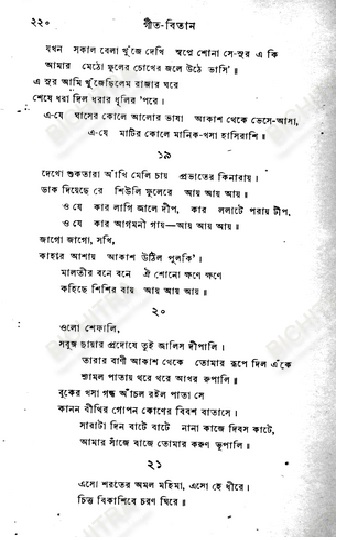 ২২০ গীত-বিতান
যখন সকাল বেলা খুঁজে দেখি স্বপ্নে শোনা সে-সুর এ কি
আমার মেঠো ফুলের চোখের জলে উঠে ভাসি’॥
এ সুর আমি খুঁজেছিলেম রাজার ঘরে
শেষে ধরা দিল ধরার ধূলির ’পরে।
এ-যে ঘাসের কোলে আলোর ভাষা আকাশ থেকে ভেসে-আসা,
এ-যে মাটির কোলে মানিক-খসা হাসিরাশি॥
১৯
দেখো শুকতারা আঁখি মেলি চায় প্রভাতের কিনারায়।
ডাক দিয়েছে রে শিউলি ফুলেরে আয় আয় আয়॥
ও যে কার লাগি জালে দীপ, কার ললাটে পরায় টীপ,
ও যে কার আগমনী গায়—আয় আয় আয়॥
জাগো জাগো, সখি,
কাহার আশায় আকাশ উঠিল পুলকি’॥
মালতীর বনে বনে ঐ শোনো ক্ষণে ক্ষণে
কহিছে শিশির বায় আয় আয় আয়॥
২০
ওলো শেফালি,
সবুজ ছায়ার প্রদোষে তুই জালিস দীপালি॥
তারার বাণী আকাশ থেকে তোমার রূপে দিল এঁকে
শ্যামল পাতায় থরে থরে আখর রূপালি॥
বুকের খসা গন্ধ আঁচল রইল পাতা সে
কানন বীথির গোপন কোণের বিবশ বাতাসে।
সারাটা দিন বাটে বাটে নানা কাজে দিবস কাটে,
আমার সাঁজে বাজে তোমার করুণ ভূপালি॥
২১
এসো শরতের অমল মহিমা, এসো হে ধীরে।
চিত্ত বিকাশিবে চরণ ঘিরে॥